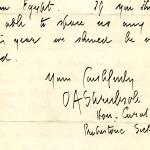 Egypt. If you
able to spare us any
is year we should be
d.
Yours faithfully
O A Shrubsole
Hon. Curat
Prehistoric Sec